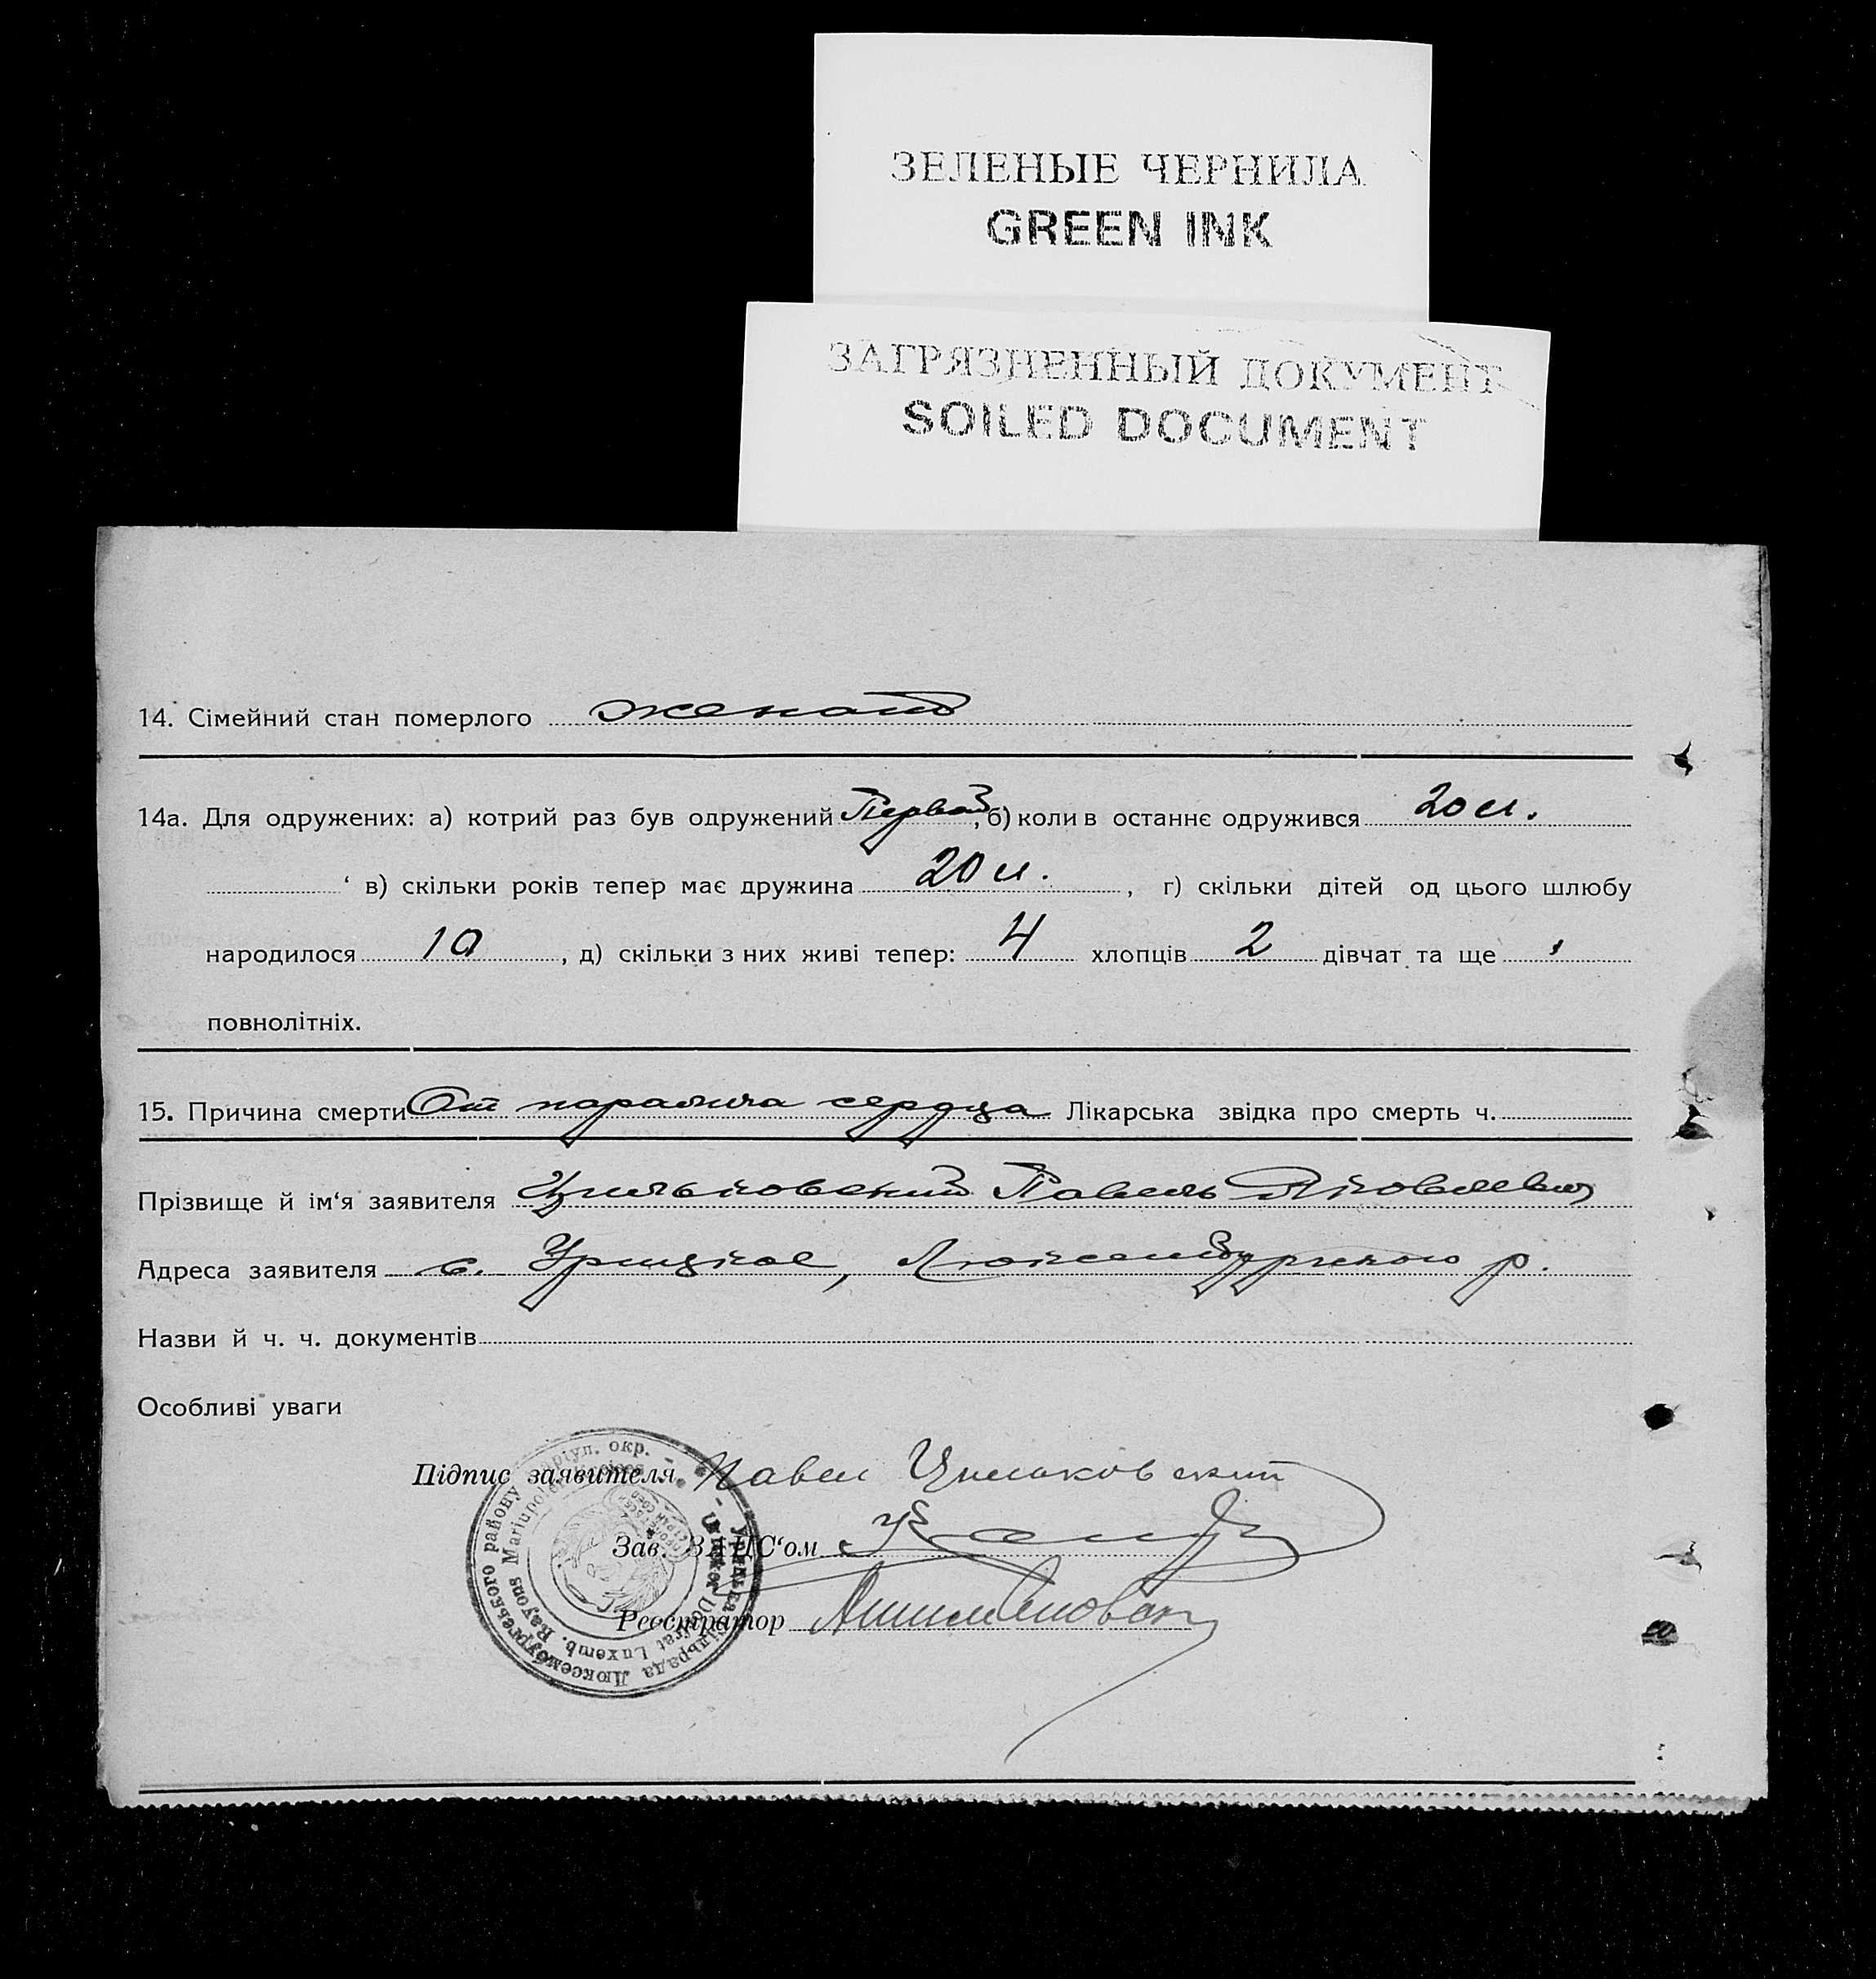 ЗЕЛЕНЫЕ ЧЕРНИЛА
GREEN INK
ЗАГРЯЗНЕННЫЙ ДОКУМЕНТ
SOILED DOCUMENT
14. Сімейний стан померлого женат
14а. Для одружених: а) котрий раз був одружений Первой, б) коли в останнє одружився 20 л.
‘ в) скільки років тепер має дружина 20 л. , г) скільки дітей од цього шлюбу
народилося 10 , д) скільки з них живі тепер: 4 хлопців 2 дівчат та ще
повнолітніх.
15. Причина смерти От паралича сердца Лікарська звідка про смерть ч.
Прізвище й ім‘я заявителя Цильковский Павель Яковлевич
Адреса заявителя с. Урицкое, Люксембургского р.
Назви й ч. ч. документів
Особливі уваги
Підпис заявителя Павел Цильковский
Зав. ЗАГС‘ом
Реєстратор
Сільрада Люксембургського району Маріуп. окр.
Dorfrat Luxemb. Rayons Mariupoler Kreises